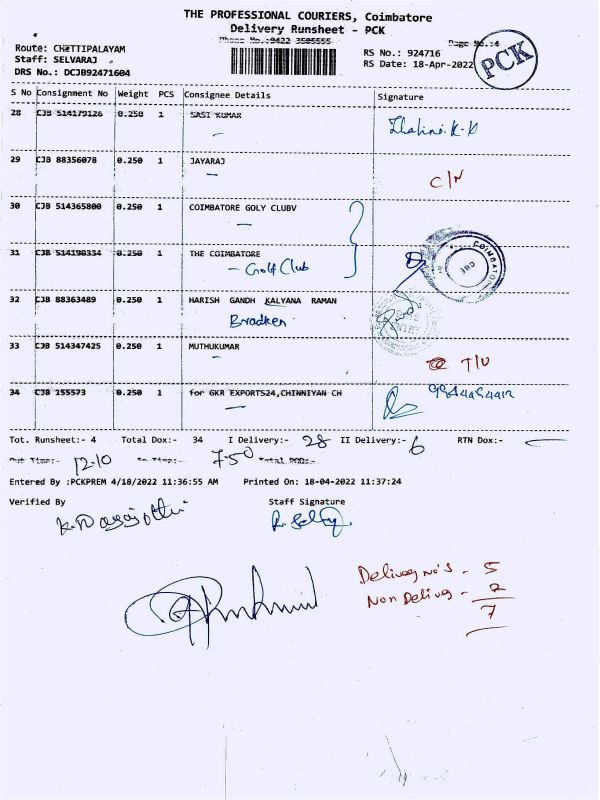 THE PROFESSIONAL COURIERS, Coimbatore
Delivery Runsheet - PCK
Phone No.:0422 3505555
Page No.:4
Route: CHETTIPALAYAM
RS No.: 924716
Staff: SELVARAJ
RS Date: 18-Apr-2022
PCK
DRS No.: DCJB92471604
S No Consignment No Weight PCS Consignee Details Signature
28 CJB 514179126 0.250 1 SASI KUMAR
29 CJB 88356078 0.250 1 JAYARAJ
C/N
30 CJB 514365800 0.250 1 COIMBATORE GOLY CLUBV
31 CJB 514198334 0.250 1 THE COIMBATORE
- Golf Club
COIMBATORE
CBE
32 CJB 88363489 0.250 1 HARISH GANDH KALYANA RAMAN
Bradken
33 CJB 514347425 0.250 1 MUTHUKUMAR
T/U
34 CJB 155573 0.250 1 for GKR EXPORTS24,CHINNIYAN CH
Tot. Runsheet:- 4 Total Dox:- 34 I Delivery:- 28 II Delivery:- 6 RTN Dox:- -
Out Time:- 12-10 In Time:- 7-50 Total PODs:-
Entered By :PCKPREM 4/18/2022 11:36:55 AM Printed On: 18-04-2022 11:37:24
Verified By Staff Signature
Delivery No's - 5
Non Delivery - 2
7